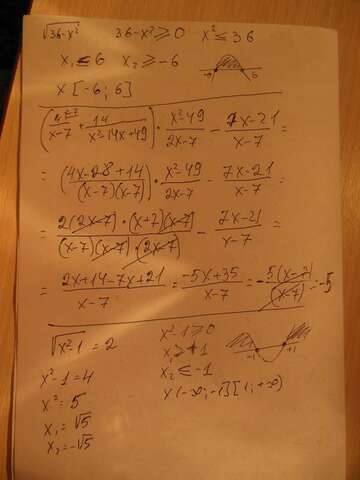 √36-x²   36-x² ⩾ 0   x² ≤ 36
x₁ ≤ 6   x₂ ⩾ -6
-6   6
x [-6; 6]
(4/(x-7) + 14/(x²-14x+49)) · (x²-49)/(2x-7) - (7x-21)/(x-7) =
= ((4x-28+14)/((x-7)(x-7))) · (x²-49)/(2x-7) - (7x-21)/(x-7) =
= (2(2x-7) · (x+7)(x-7))/((x-7)(x-7) · (2x-7)) - (7x-21)/(x-7) =
= (2x+14-7x+21)/(x-7) = (-5x+35)/(x-7) = -5(x-7)/(x-7) = -5
√x²-1 = 2   x²-1 ⩾ 0
x²-1 = 4   x₁ ⩾ +1   -1   +1
x² = 5   x₂ ≤ -1
x₁ = √5   x (-∞; -1] [1; +∞)
x₂ = -√5